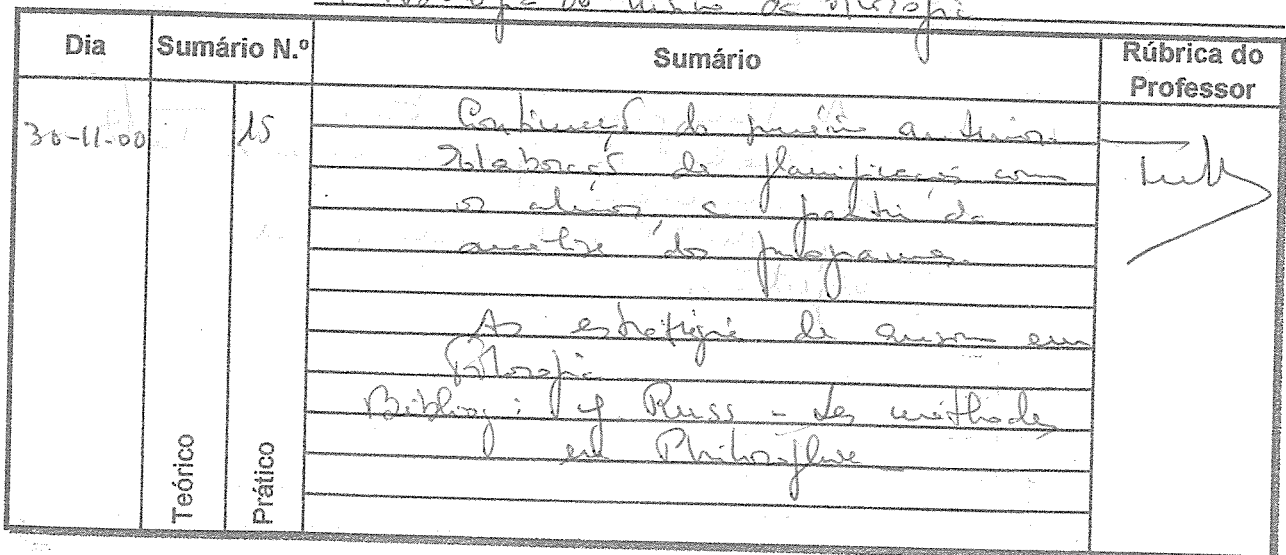 do Ensino da Filosofia
Dia Sumário N.º Sumário Rúbrica do Professor
30-11-00 15 Continuação do sumário anterior.
Elaboração de planificação com
os alunos, a partir da
análise dos programas.
As estratégias de ensino em
Filosofia
Bibliog: J. Russ - Les méthodes
en Philosophie
Teórico
Prático